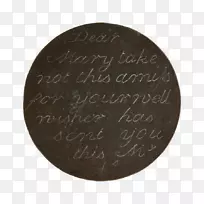 Dear
Mary take
not this amis
for yourwell
wisher has
sent you
this